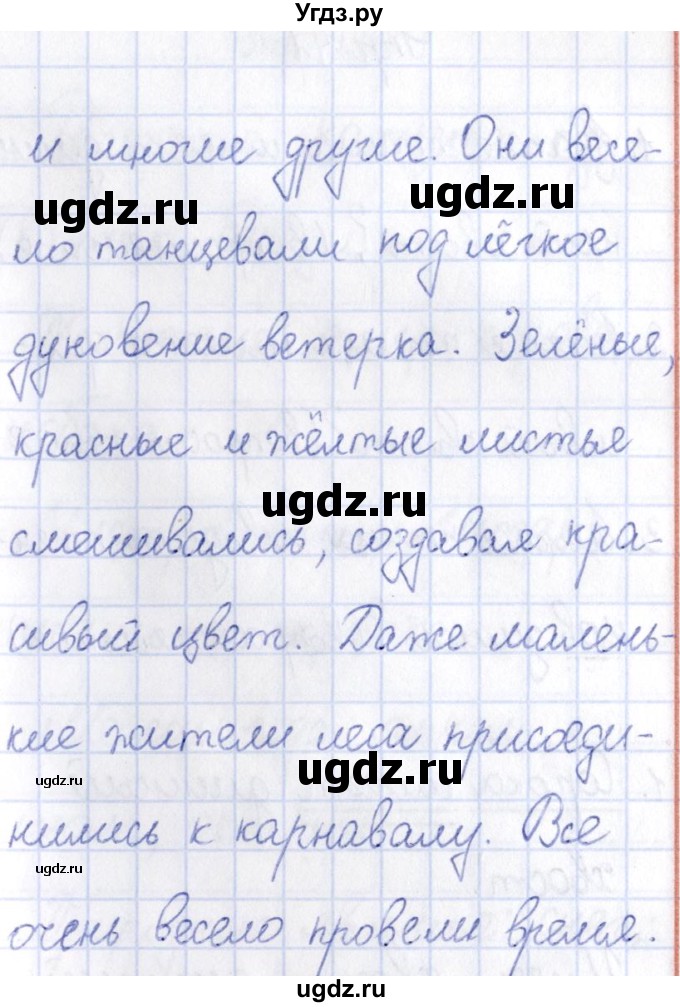 Угдз.ру
и многие другие. Они весе-
ugdz.ru ugdz.ru
ло танцевали под лёгкое
дуновение ветерка. Зелёные,
красные и жёлтые листья
ugdz.ru
смешивались, создавая кра-
сивый цвет. Даже малень-
кие жители леса присоеди-
ugdz.ru ugdz.ru
нились к карнавалу. Все
ugdz.ru
очень весело провели время.
ugdz.ru